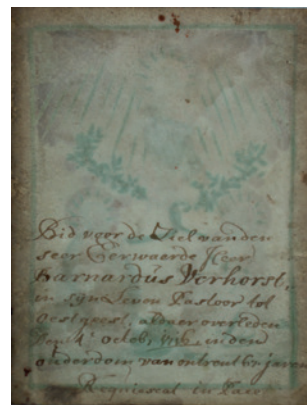 Bid voor de Ziel van den
seer Eerwaerde Heer
Barnardus Verhorst,
in syn Leven Pastoor tot
Oestgeest, aldaer overleden
den 4 octob, in den
ouderdom van ontrent jaren
Requiescat in Pace